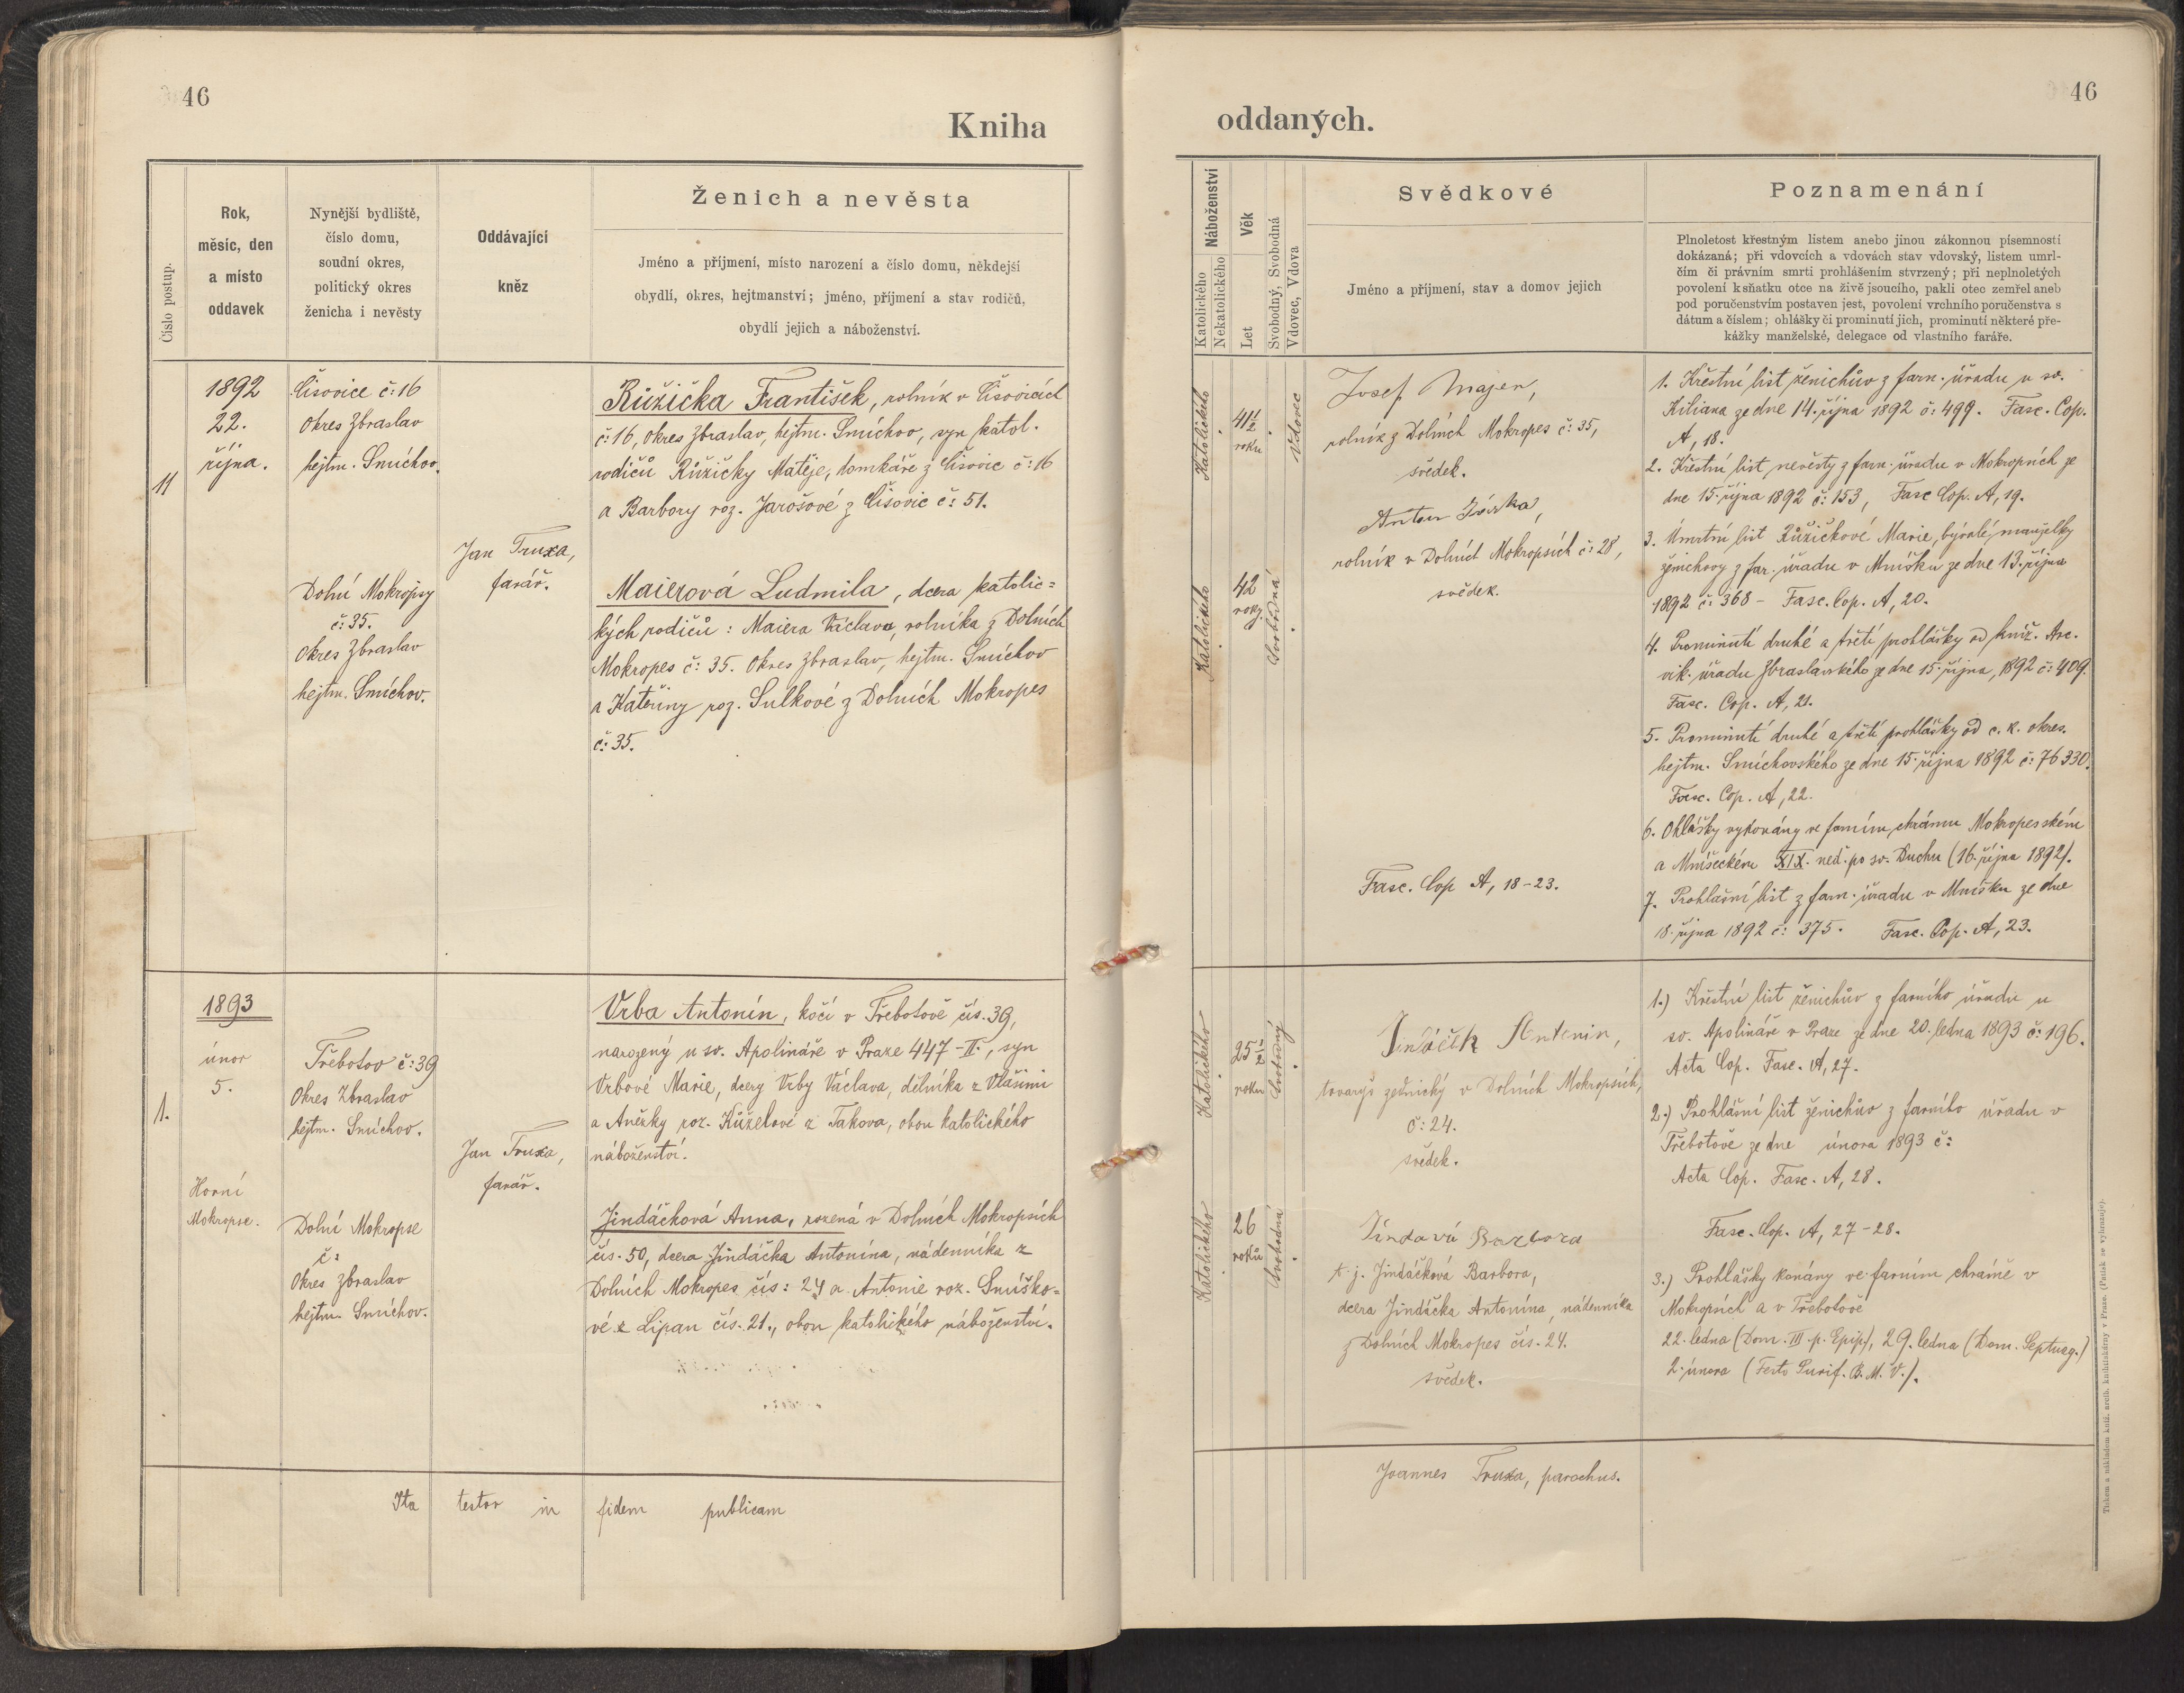 46
Kniha
Číslo postup.
Rok,
měsíc, den
a místo
oddavek
Nynější bydliště,
číslo domu,
soudní okres,
politický okres
ženicha i nevěsty
Oddávající
kněz
Ženich a nevěsta
Jméno a příjmení, místo narození a číslo domu, někdejší
obydlí, okres, hejtmanství; jméno, příjmení a stav rodičů,
obydlí jejich a náboženství.
11
1892
22.
října.
Čisovice č: 16
okres Zbraslav
hejtm. Smíchov.
Růžička František, rolník v Čisovicích
č: 16, okres Zbraslav, hejtm. Smíchov, syn katol.
rodičů Růžičky Matěje, domkáře z Čisovic č: 16
a Barbory roz. Jarošové z Čisovic č: 51.
Jan Truxa,
farář.
Dolní Mokropsy
č: 35.
okres Zbraslav
hejtm. Smíchov.
Maierová Ludmila, dcera katolic=
kých rodičů: Maiera Václava, rolníka z Dolních
Mokropes č: 35. okres Zbraslav, hejtm. Smíchov
a Kateřiny roz. Sulkové z Dolních Mokropes
č: 35.
1.
1893
únor
5.
Horní
Mokropse.
Třebotov č: 39
Okres Zbraslav
hejtm. Smíchov.
Vrba Antonín, kočí v Třebotově čís. 39,
narozený u sv. Apolináře v Praze 447-II., syn
Vrbové Marie, dcery Vrby Václava, dělníka z Vlašimi
a Anežky roz. Kůželové z Takova, obou katolického
náboženství.
Jan Truxa,
farář.
Dolní Mokropse
č:
Okres Zbraslav
hejtm. Smíchov.
Jindáčková Anna, rozená v Dolních Mokropsích
čís. 50, dcera Jindáčka Antonína, nádenníka z
Dolních Mokropes čís: 24 a Antonie roz. Smíško=
vé z Lipan čís. 21., obou katolického náboženství.
Ita testor in fidem publicam
46
oddaných.
Náboženství
Katolického
Nekatolického
Věk
Let
Svobodný, Svobodná
Vdovec, Vdova
Svědkové
Jméno a příjmení, stav a domov jejich
Poznamenání
Plnoletost křestným listem anebo jinou zákonnou písemností
dokázaná; při vdovcích a vdovách stav vdovský, listem umrl-
čím či právním smrti prohlášením stvrzený; při neplnoletých
povolení k sňatku otce na živě jsoucího, pakli otec zemřel aneb
pod poručenstvím postaven jest, povolení vrchního poručenstva s
dátum a číslem; ohlášky či prominutí jich, prominutí některé pře-
kážky manželské, delegace od vlastního faráře.
Katolického
41½
roku
Vdovec
Josef Majer,
rolník z Dolních Mokropes č: 35,
svědek.
Anton
rolník v Dolních Mokropsích č: 28,
svědek.
Katolického
42
roky.
Svobodná
Fasc. Cop A, 18-23.
1. Křestní list ženichův z farn. úřadu u sv.
Kiliana ze dne 14. října 1892 č: 499. Fasc. Cop.
A, 18.
2. Křestní list nevěsty z farn. úřadu v Mokropsích ze
dne 15. října 1892 č: 153, Fasc Cop. A, 19.
3. Úmrtní list Růžičkové Marie, bývalé manželky
ženichovy z far. úřadu v Mníšku ze dne 13. října
1892 č: 368 - Fasc. Cop. A, 20.
4. Prominutí druhé a třetí prohlášky od kníž. Arc.
vik. úřadu Zbraslavského ze dne 15. října, 1892 č: 409.
Fasc. Cop. A, 21.
5. Prominutí druhé a třetí prohlášky od c. k. okres.
hejtm. Smíchovského ze dne 15. října 1892 č: 76330.
Fasc. Cop. A, 22.
6. Ohlášky vykonány ve farním chrámu Mokropesském
a Mníšeckém XIX. ned. po sv. Duchu (16. října 1892).
7. Prohlášní list z farn. úřadu v Mníšku ze dne
18. října 1892 č: 375. Fasc. Cop. A, 23.
Katolického
25½
roku
Svobodný
Antonin,
tovaryš zednický v Dolních Mokropsích,
č: 24.
svědek.
Katolického
26
roků
Svobodná
Barbora
t. j. Jindáčková Barbora,
dcera Jindáčka Antonína, nádenníka
z Dolních Mokropes čís. 24.
svědek.
1.) Křestní list ženichův z farního úřadu u
sv. Apolináře v Praze ze dne 20. ledna 1893 č: 196.
Acta Cop. Fasc. A, 27.
2.) Prohlášní list ženichův z farního úřadu v
Třebotově ze dne února 1893 č:
Acta Cop. Fasc. A, 28.
Fasc. Cop. A, 27-28.
3.) Prohlášky konány ve farním chrámě v
Mokropsích a v Třebotově
22. ledna (Dom. III. p. Epip.), 29. ledna (Dom. Septuag.)
2. února (Festo Purif. B. M. V.).
Joannes Truxa, parochus.
Tiskem a nákladem kníž. arcib. knihtiskárny v Praze. (Patisk se vyhrazuje).